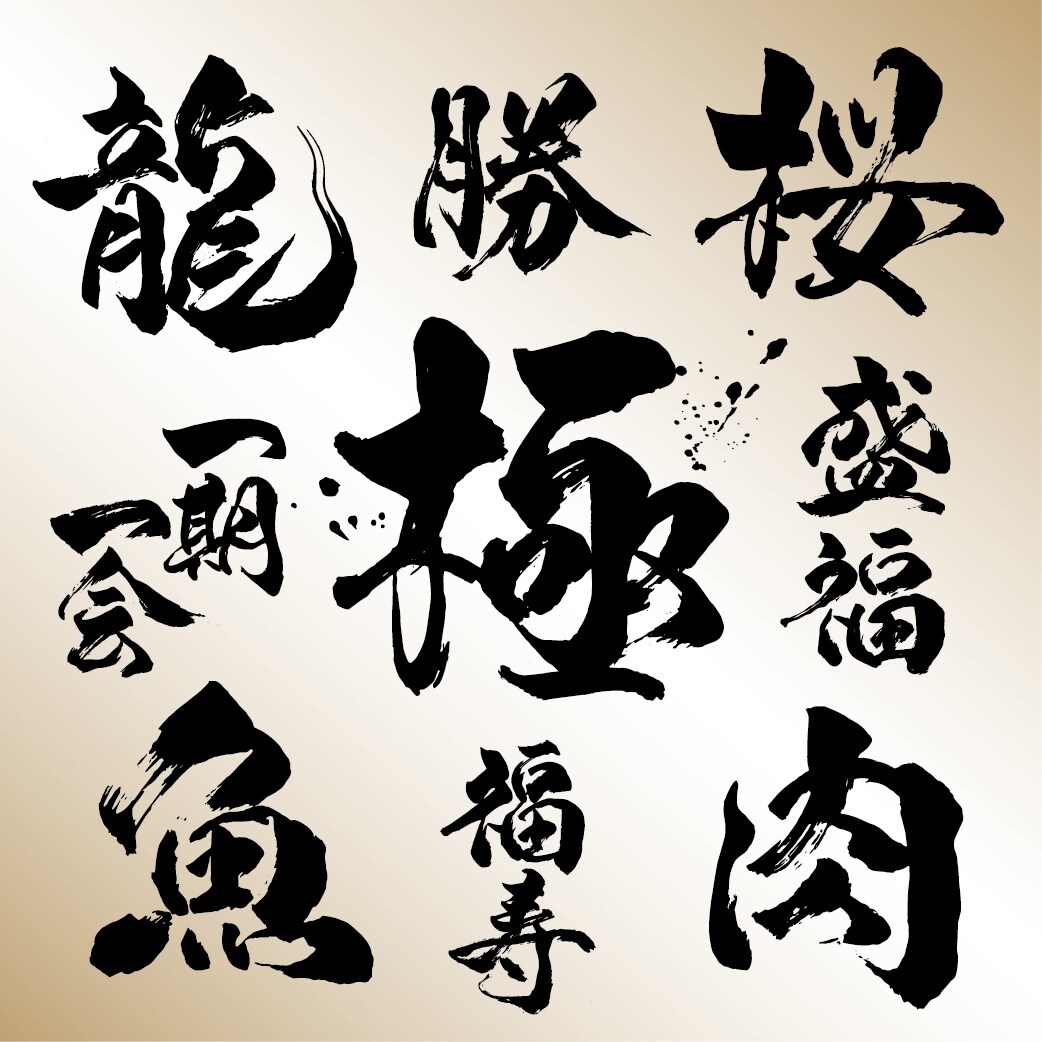 龍
勝
桜
極
一期
一会
盛福
魚
福寿
肉